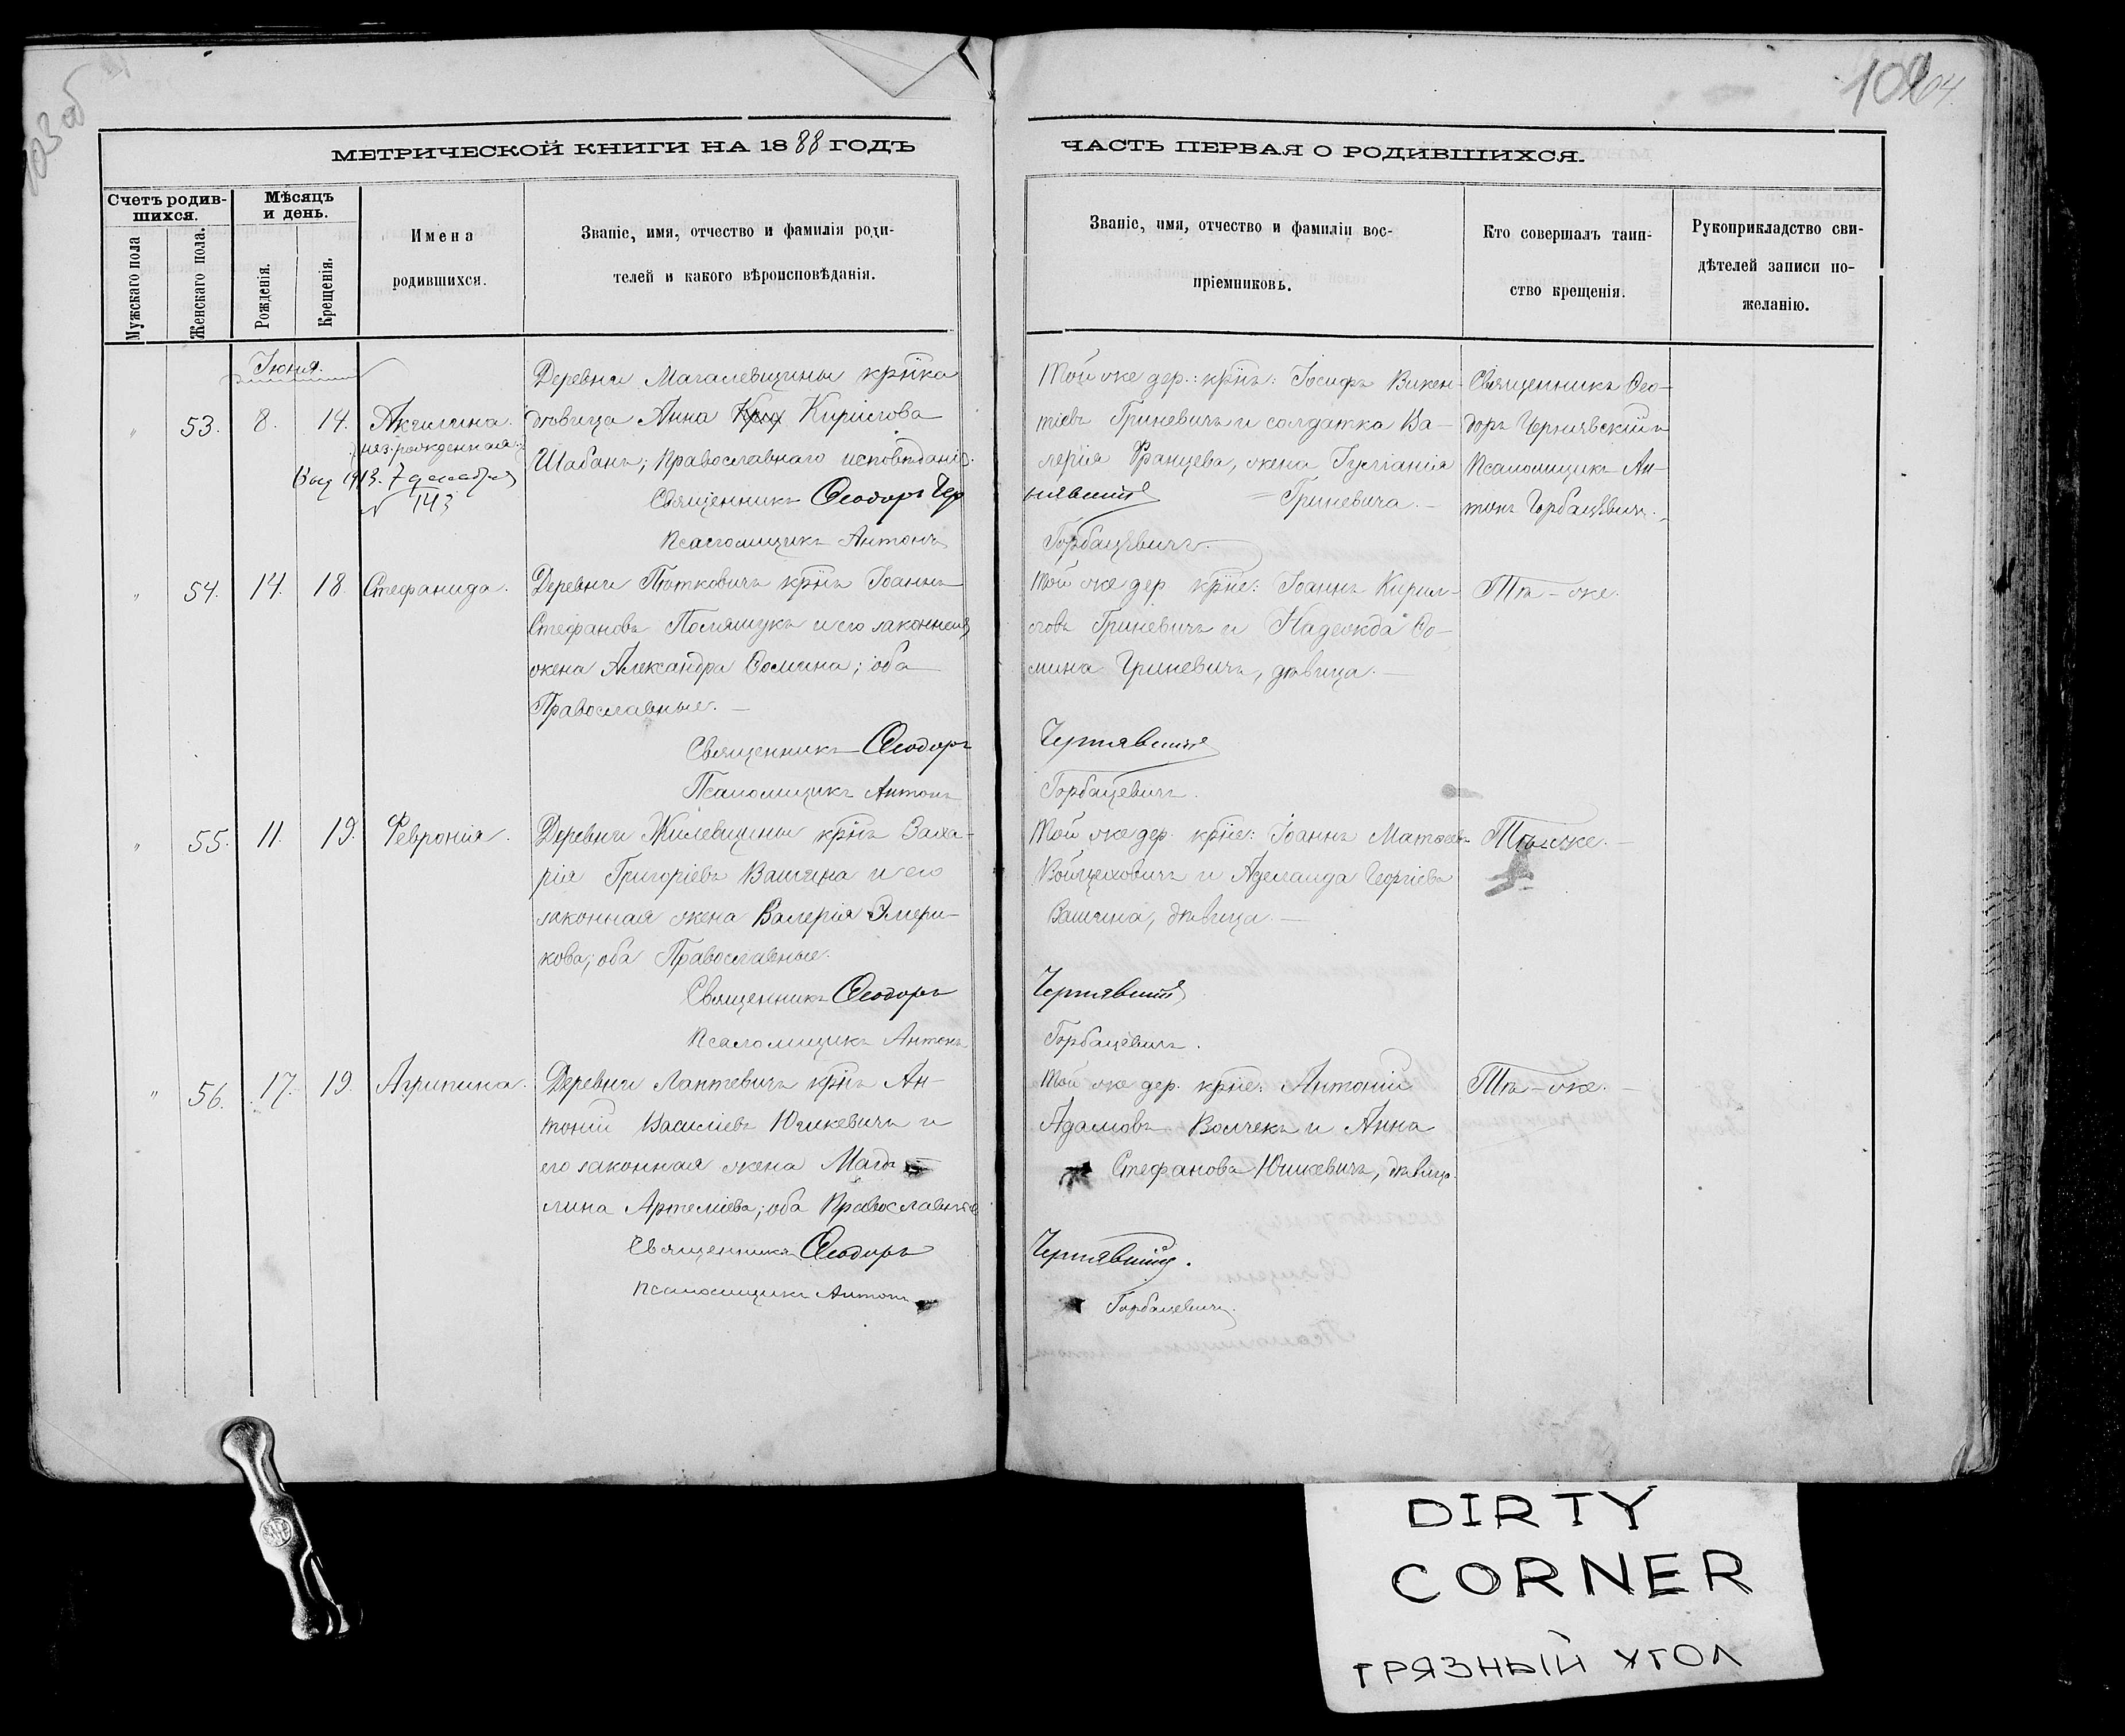 103 об
104.
МЕТРИЧЕСКОЙ КНИГИ НА 1888 ГОДЪ
ЧАСТЬ ПЕРВАЯ О РОДИВШИХСЯ.
Счетъ родив-
шихся.
Мужскаго пола
Женскаго пола.
Мѣсяцъ
и день.
Рожденія.
Крещенія.
Имена
родившихся.
Званіе, имя, отчество и фамилія роди-
телей и какого вѣроисповѣданія.
Званіе, имя, отчество и фамиліи вос-
пріемниковъ.
Кто совершалъ таин-
ство крещенія.
Рукоприкладство сви-
дѣтелей записи по-
желанію.
Іюня.
" 53. 8. 14. Акилина.
незрожденная
Выд 1913. 7 декабря
№ 143
Деревни Магалевщины крѣнка
дѣвица Анна Кирилова
Шабанъ; Православнаго исповѣданія.
Священникъ Ѳеодоръ Чер
нявскій
Псаломщикъ Антонъ
Горбацевичъ.
Той же дер.: крѣнъ: Іосифъ Викен-
тіевъ Гриневичъ и солдатка Ва-
лерія Францева, жена Іуліанія
Гриневича.
Священникъ Ѳео-
доръ Чернявскій и
Псаломщикъ Ан-
тонъ Горбацевичъ.
" 54. 14. 18. Стефанида.
Деревни Пяткевичъ крѣнъ Іоаннъ
Стефановъ Полящукъ и его законная
жена Александра Ѳомина; оба
Православные.
Священникъ Ѳеодоръ
Чернявскій
Псаломщикъ Антонъ
Горбацевичъ.
Той же дер крѣне: Іоаннъ Кирил-
ловъ Гриневичъ и Надежда Ѳо-
мина Гриневичъ, дѣвица.
Тѣ-же.
" 55. 11. 19. Февронія.
Деревни Жилевщины крѣнъ Заха-
рія Григоріевъ Вашина и его
законная жена Валерія Эмери-
кова; оба Православные.
Священникъ Ѳеодоръ
Чернявскій
Псаломщикъ Антонъ
Горбацевичъ.
Той же дер. крѣне: Іоаннъ Матѳеевъ
Войцеховичъ и Аделаида Георгіева
Вашина, дѣвица.
Тѣ-же.
" 56. 17. 19. Агрипина.
Деревни Лаптевичъ крѣнъ Ан-
тоній Василіевъ Юшкевичъ и
его законная жена Магда-
лина Артеміева; оба Православные
Священникъ Ѳеодоръ
Чернявскій.
Псаломщикъ Антонъ
Горбацевичъ.
Той же дер. крѣне: Антоній
Адамовъ Волчекъ и Анна
Стефанова Юшкевичъ, дѣвица.
Тѣ-же.
DIRTY
CORNER
ГРЯЗНЫЙ УГОЛ